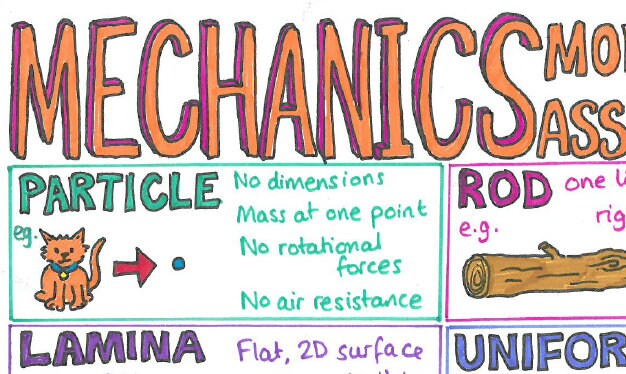 MECHANICS
PARTICLE
No dimensions
Mass at one point
No rotational
forces
No air resistance
eg.
ROD
one
e.g.
LAMINA
Flat, 2D surface